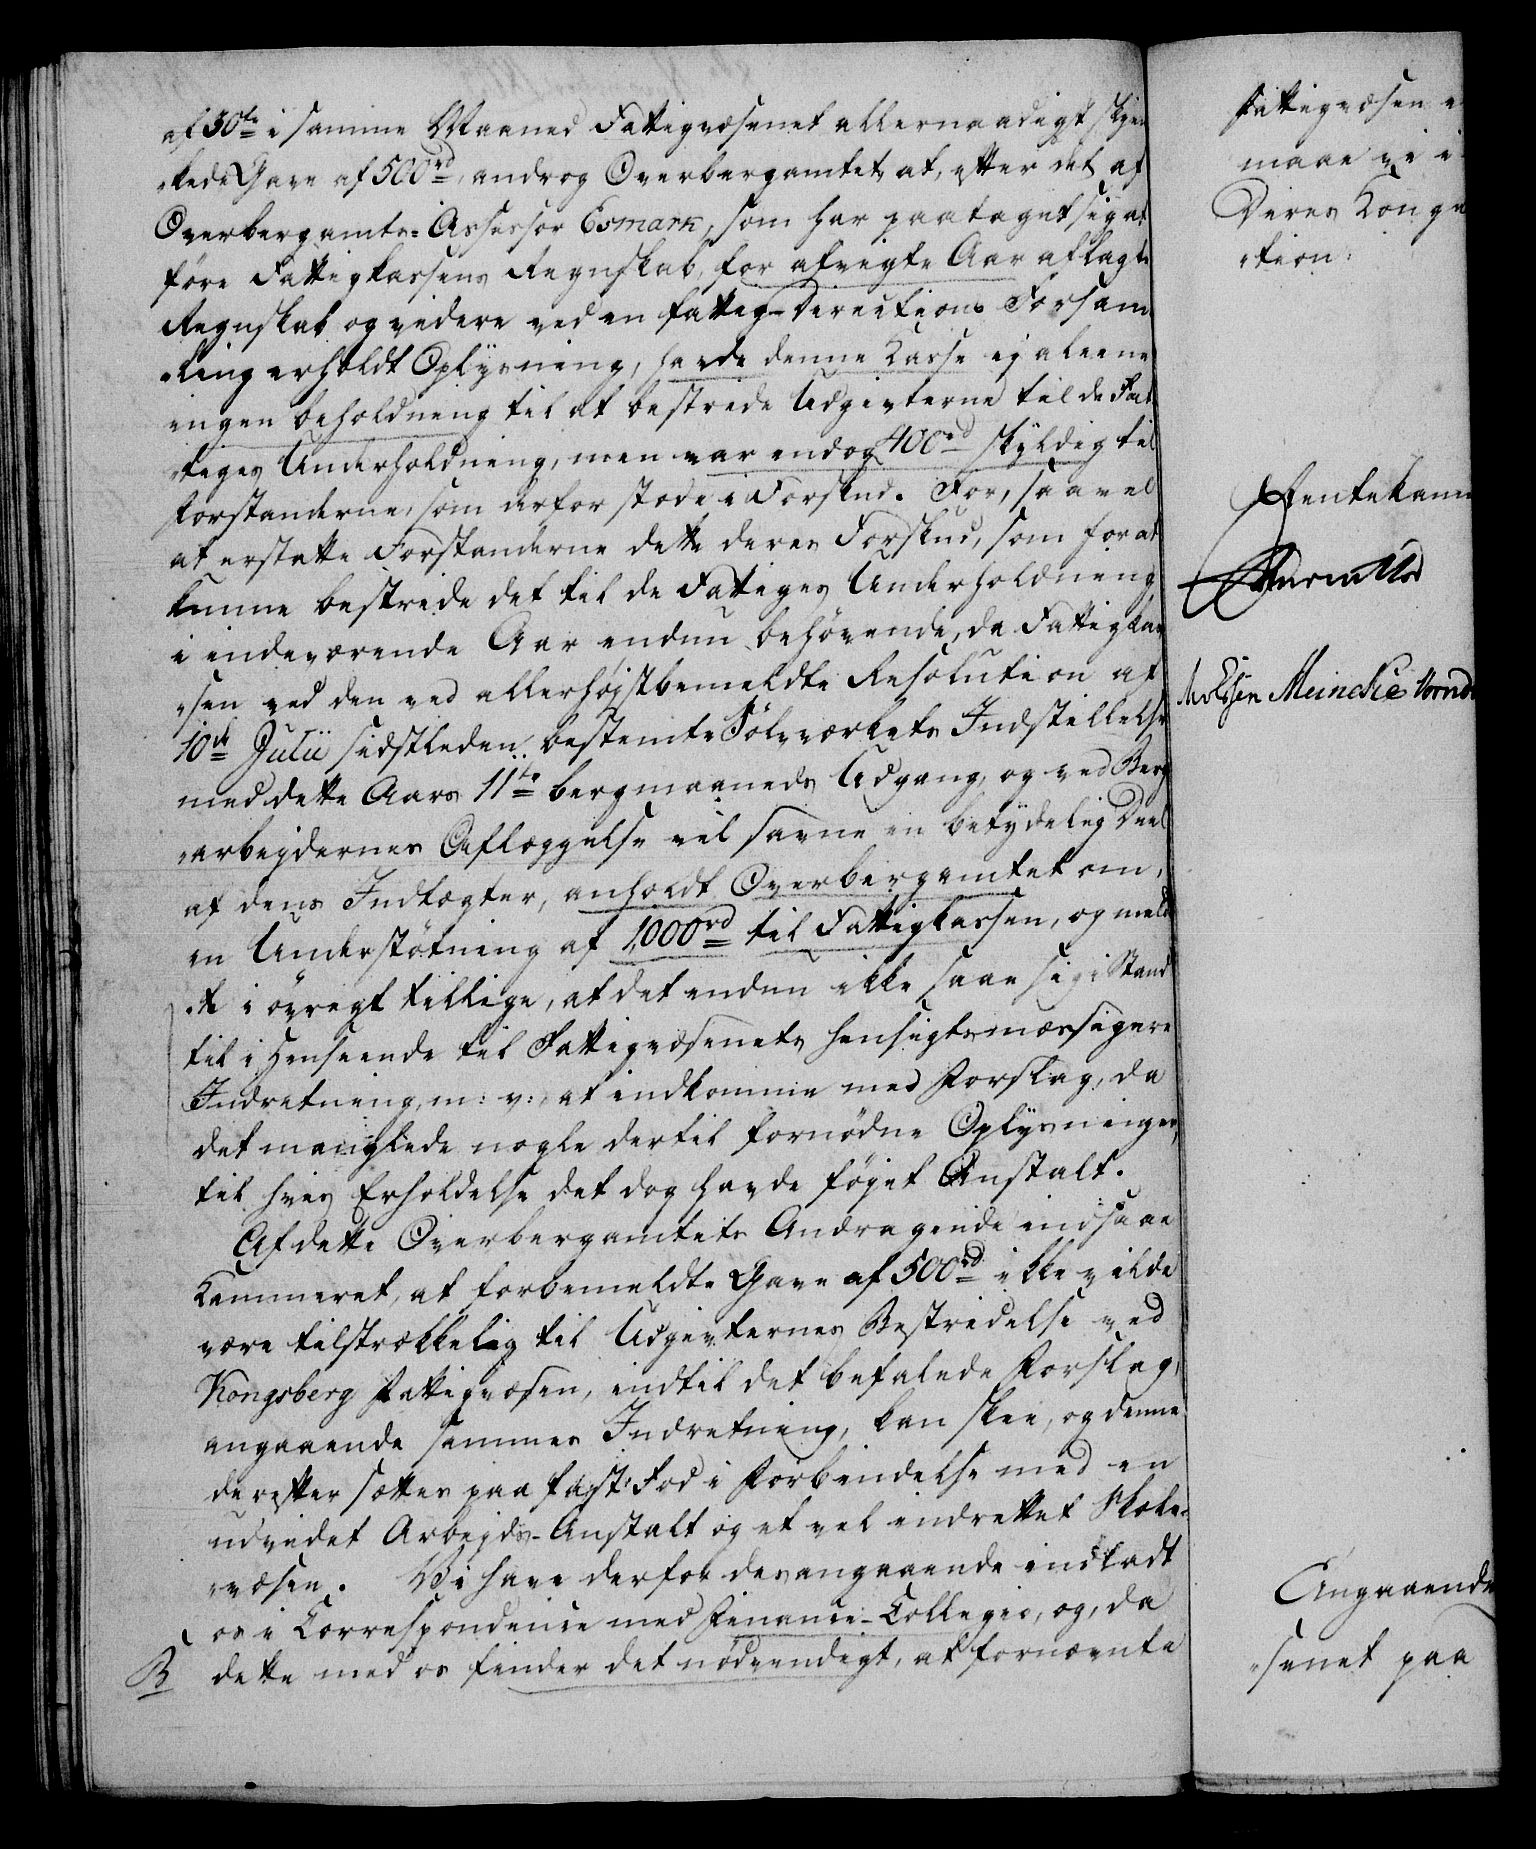 af 30te i samme Maaned Fattigvæsenet allernaadigst skjen
„kede Gave af 500rd, androg Overbergamtet, at, efter det af
Overbergamts-Assessor Esmark, som har paataget sig at
føre Fattigkassens Regnskab, for afvigte Aar aflagte
Regnskab og videre ved en Fattig-Directions Forsam
„ling erholdt Oplysning, havde denne Kasse ej aleene
ingen beholdning til at bestride Udgivterne til de Fat
„tiges Underholdning, men var endog 400rd skyldig til
Forstanderne, som derfor stode i Forskud. For, saavel
at erstatte Forstanderne dette deres Forskud, som for at
kunne bestride det til de Fattiges Underholdning
i indeværende Aar endnu behøvende, da Fattigkas
„sen ved den ved allerhøjstbemeldte Resolution af
10de Julii sidstleden bestemte Sølvværkets Indstillelse
med dette Aars 11te bergmaaneds Udgang, og ved Berg
„arbejdernes Aflæggelse vil savne en betydelig Deel
af dens Indtægter, anholdt Overbergamtet om,
en Understøtning af 1000rd til Fattigkassen, og meld
„te i øvrigt tillige, at det endnu ikke saae sig i Stand
til i Henseende til Fattigvæsenets hensigtsmæssigere
Indretning, m: v:, at indkomme med Forslag, da
det manglede nogle dertil fornødne Oplysninger,
til hvis Erholdelse det dog havde føjet Anstalt.
Af dette Overbergamtets Andragende indsaae
Kammeret, at forbemeldte Gave af 500rd ikke vilde
være tilstrækkelig til Udgivternes Bestridelse ved
Kongsberg Fattigvæsen, indtil det befalede Forslag,
angaaende sammes Indretning, kan skee, og denne
derefter sættes paa fast Fod i Forbindelse med en
udvidet Arbejds-Anstalt og et vel indrettet Skole-
„væsen. Vi have derfor desangaaende indladt
os i Correspondence med Finance-Collegio, og, da
dette med os finder det nødvendigt, at fornævnte
Fattigvæsen
maae vi i
Deres Konge
„tion:
Rentekam
Meincke
Angaaende
„senet paa